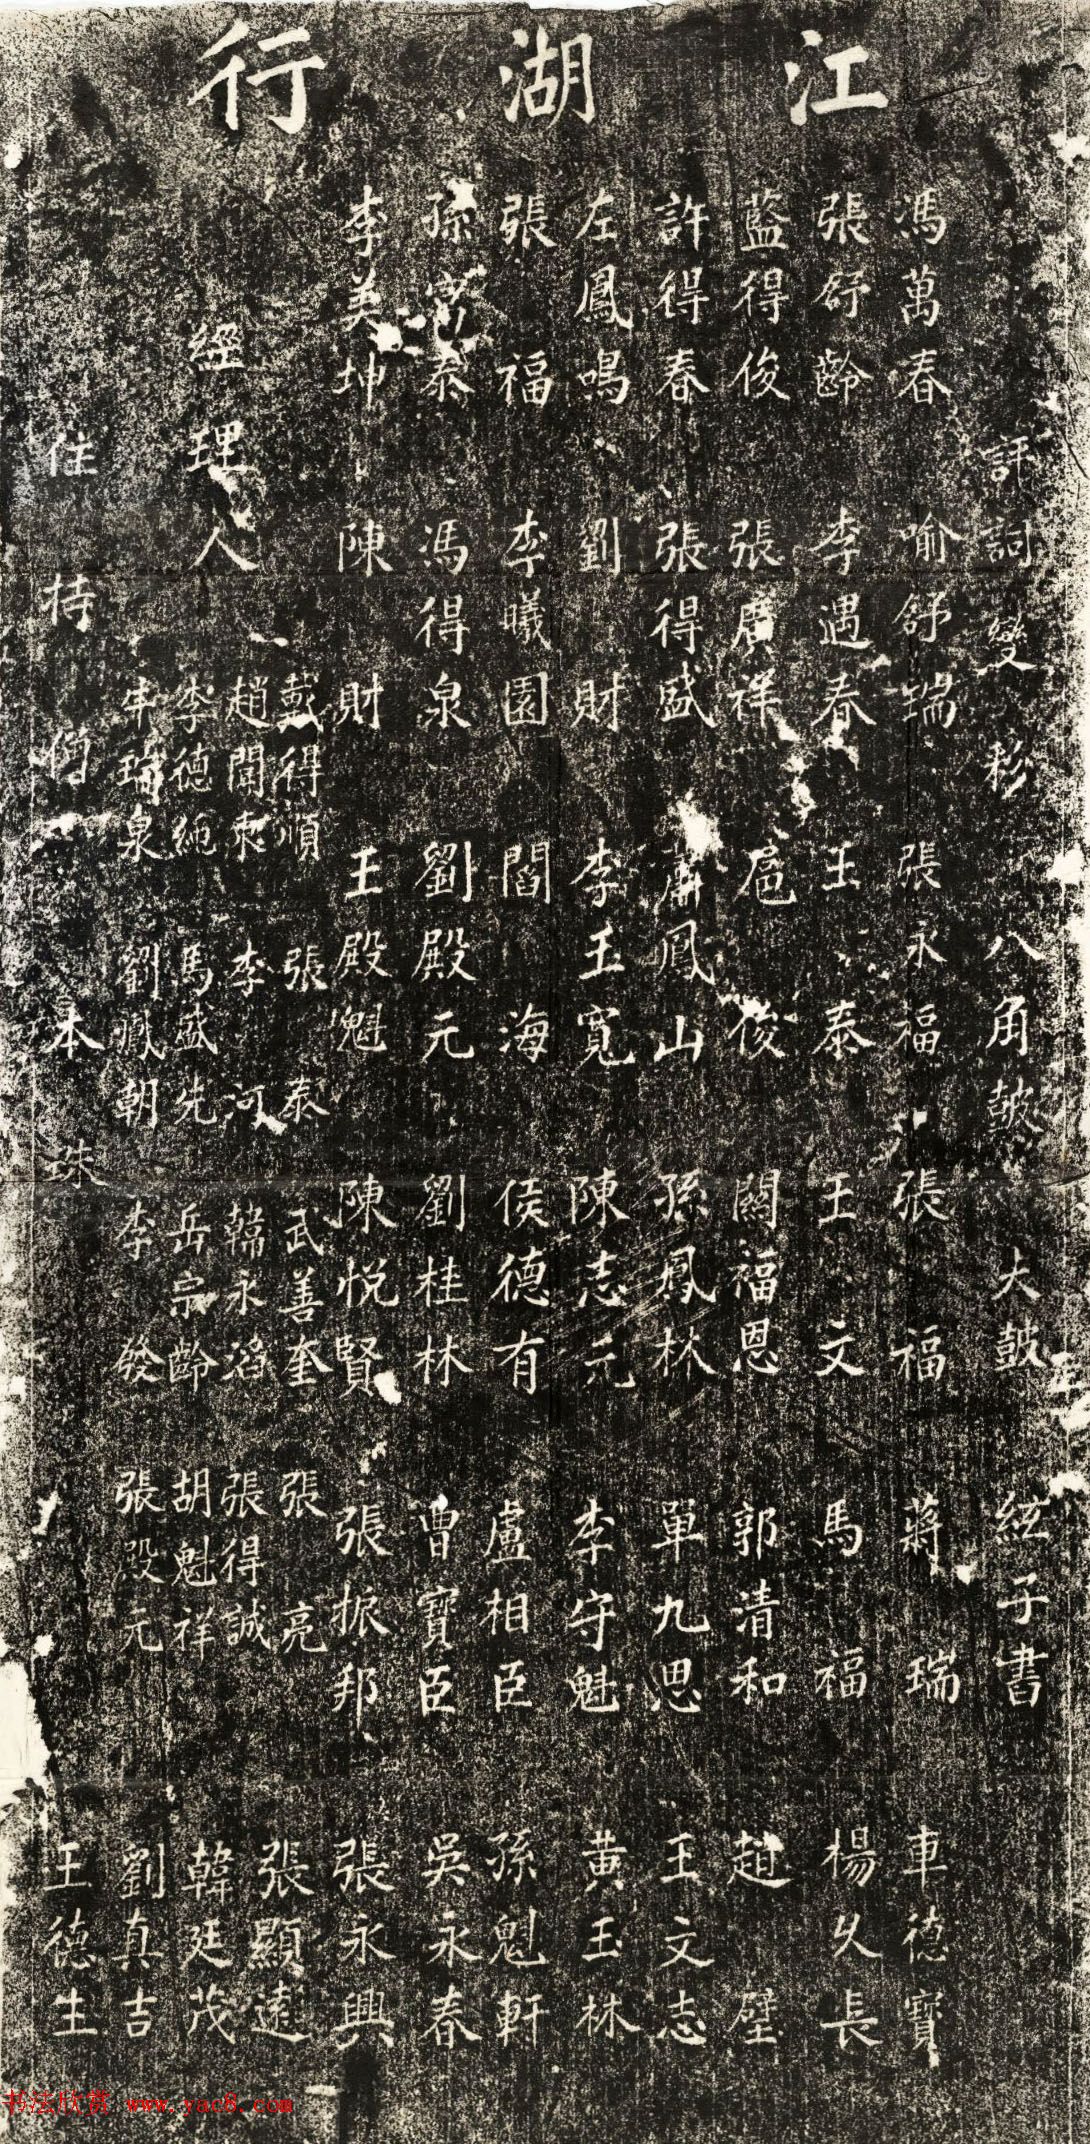 江湖行
評詞 變彩 八角鼓 大鼓 絃子書
馮萬春 喻舒瑞 張永福 張福 蔣瑞 車德寶
張舒齡 李遇春 王泰 王文 馬福 楊久長
藍得俊 張廣祥 扈俊 關福恩 郭清和 趙璧
許得春 張得盛 蕭鳳山 孫鳳林 單九思 王文志
左鳳鳴 劉財 李王寬 陳志元 李守魁 黃玉林
張福 李曦園 閻海 侯德有 盧相臣 孫魁軒
孫泰 馮得泉 劉殿元 劉桂林 曹寶臣 吳永春
李美坤 陳財 王殿魁 陳悅賢 張振邦 張永興
戴得順 張泰 武善奎 張亮 張顯遠
經理人 趙閏來 李河 韓永滔 張得誠 韓廷茂
李德純 馬盛先 岳宗齡 胡魁祥 劉真吉
牛瑞泉 劉鳳朝 李發 張殿元 王德生
住持僧 本珠
书法欣赏 www.yac8.com